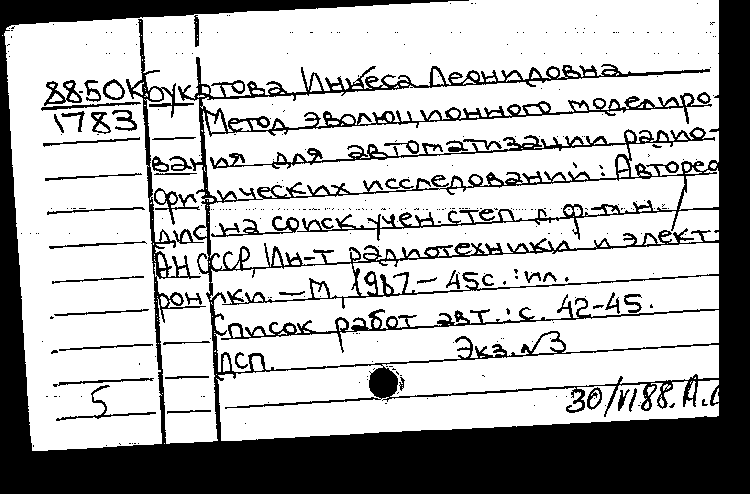 8850К Букатова, Иннеса Леонидовна
1783 Метод эволюционного моделиро-
вания для автоматизации радио-
физических исследований: Автореф
дис. на соиск. учен. степ. д.ф.-м.н. /
АН СССР, Ин-т радиотехники и элект-
роники. — М., 1987. — 45с.: ил.
Список работ авт.: с. 42-45.
ДСП. Экз. №3
5
30/VI 88. А.